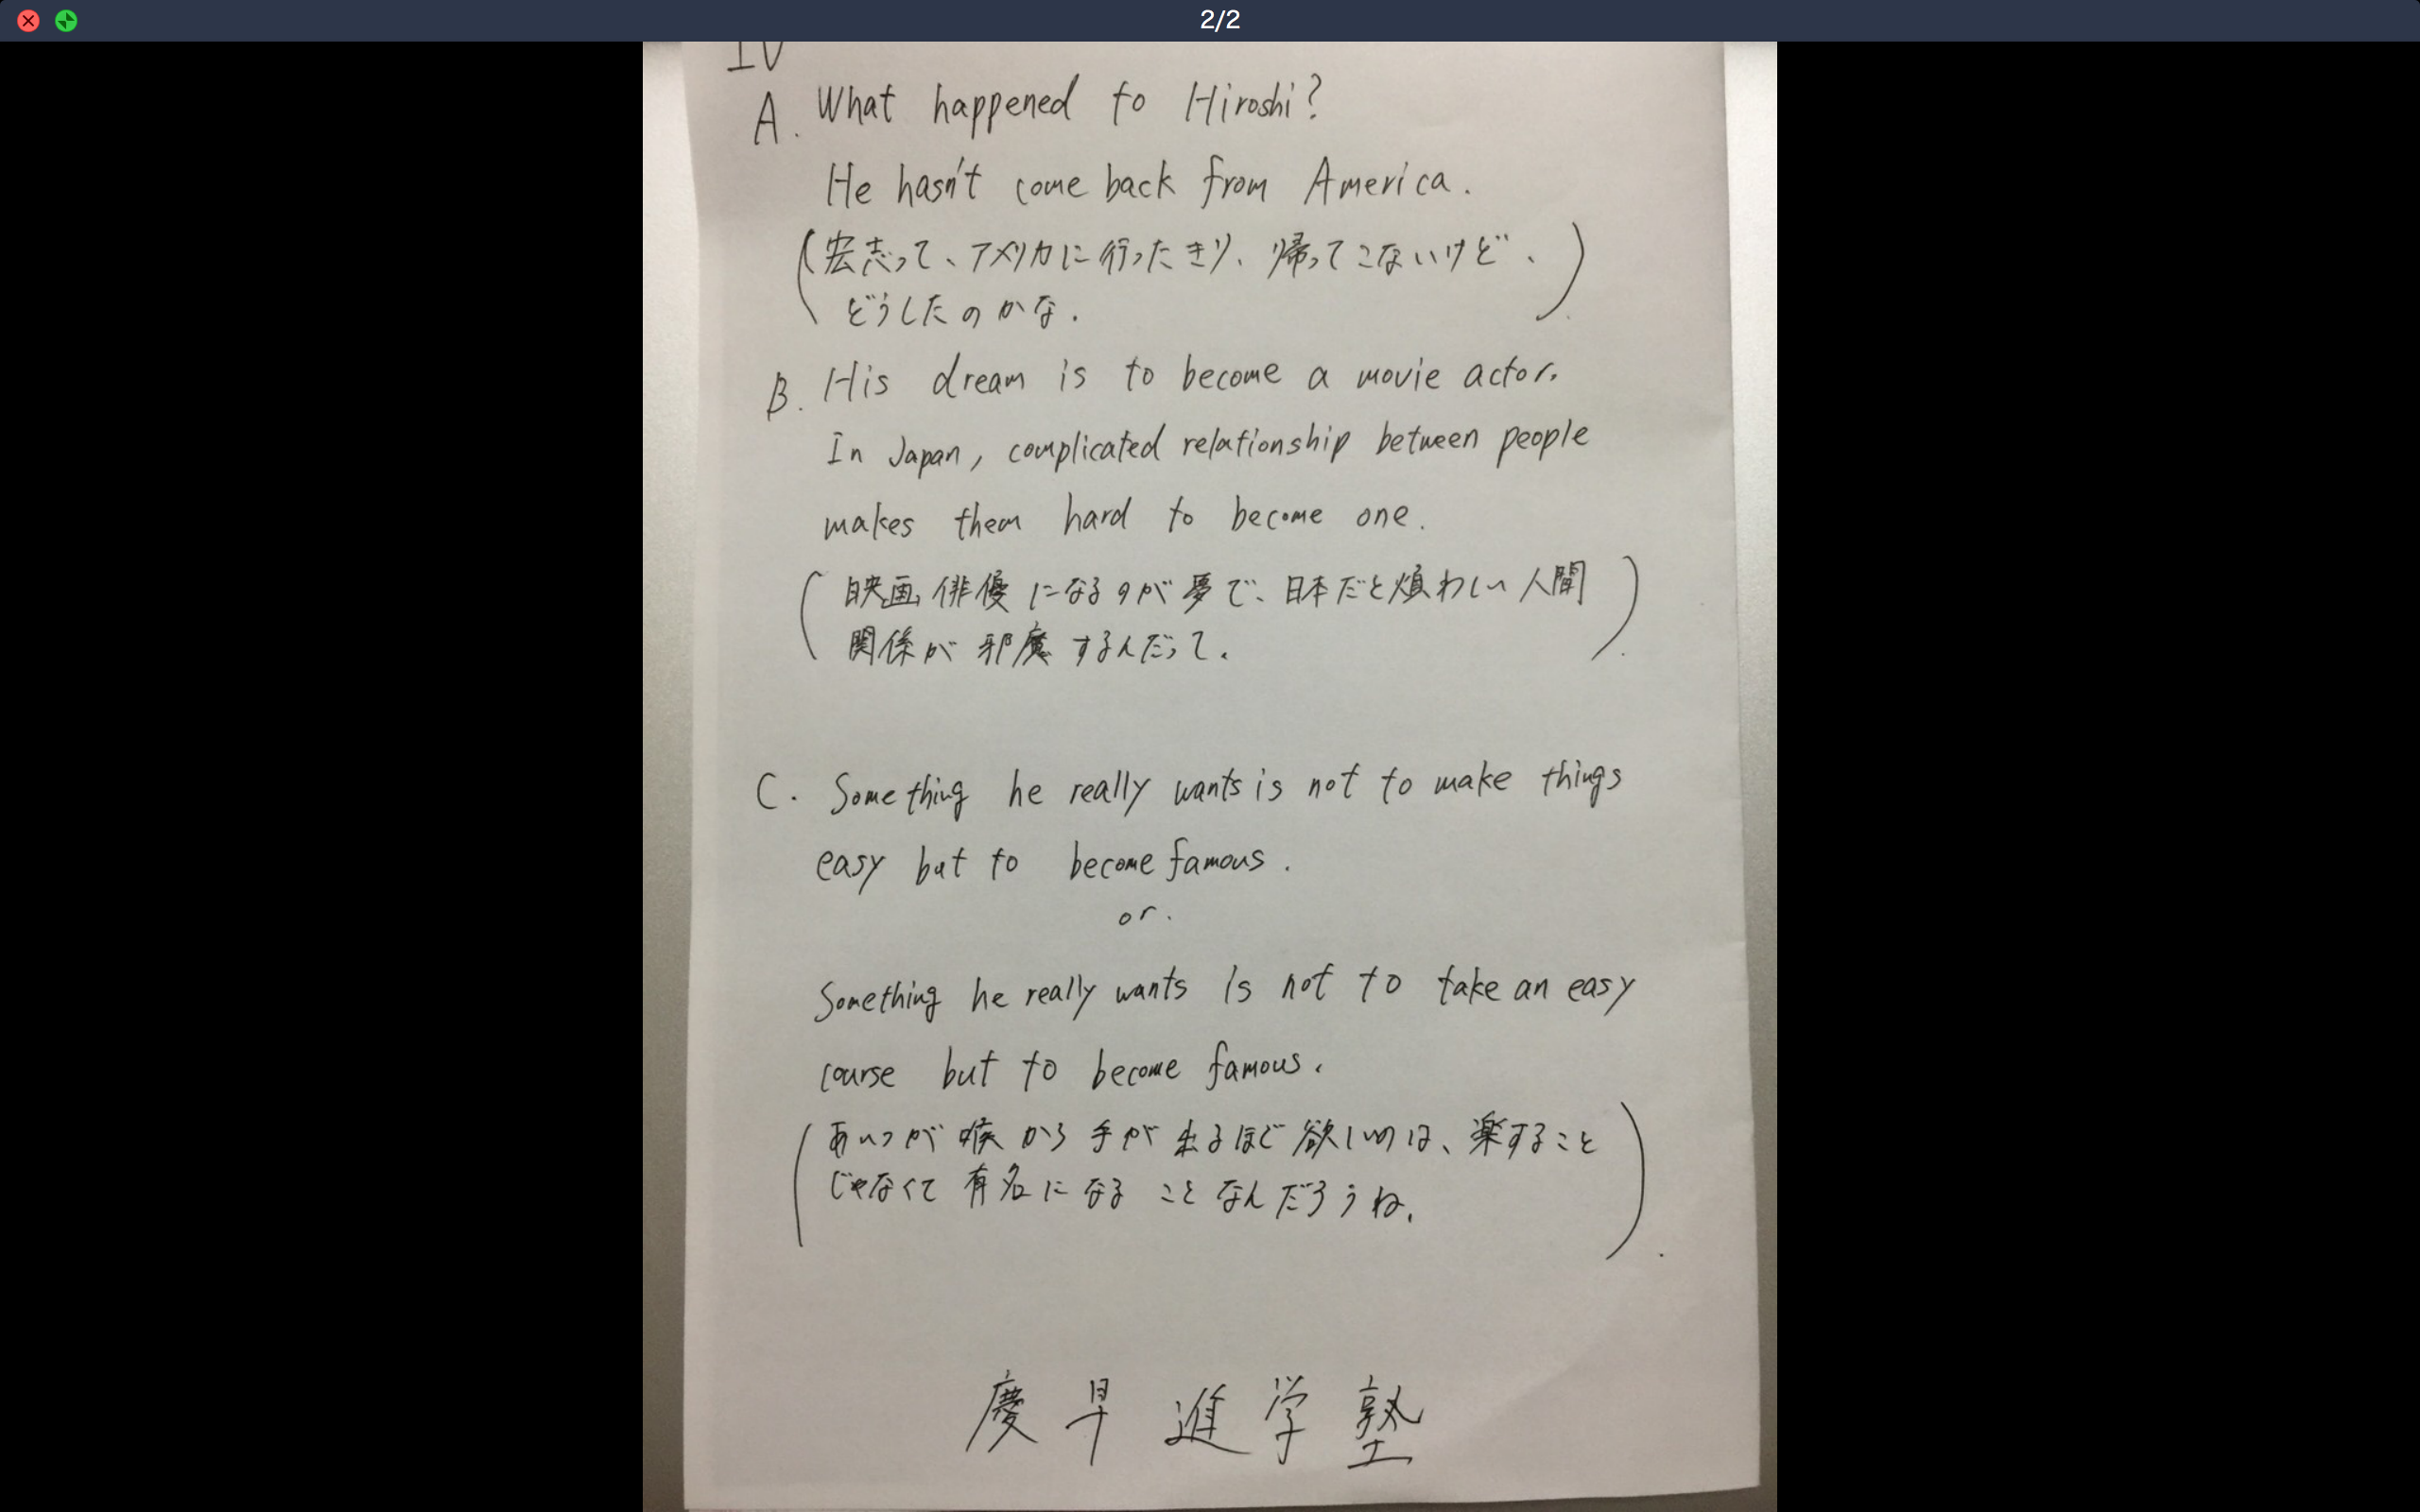 2/2
IV
A. What happened to Hiroshi?
He hasn't come back from America.
(宏志って、アメリカに行ったきり、帰ってこないけど、
どうしたのかな.)
B. His dream is to become a movie actor.
In Japan, complicated relationship between people
makes them hard to become one.
(映画俳優になるのが夢で、日本だと煩わしい人間
関係が邪魔するんだって.)
C. Something he really wants is not to make things
easy but to become famous.
or.
Something he really wants is not to take an easy
course but to become famous.
(あいつが喉から手が出るほど欲しいのは、楽すること
じゃなくて有名になることなんだろうね.)
慶早進学塾